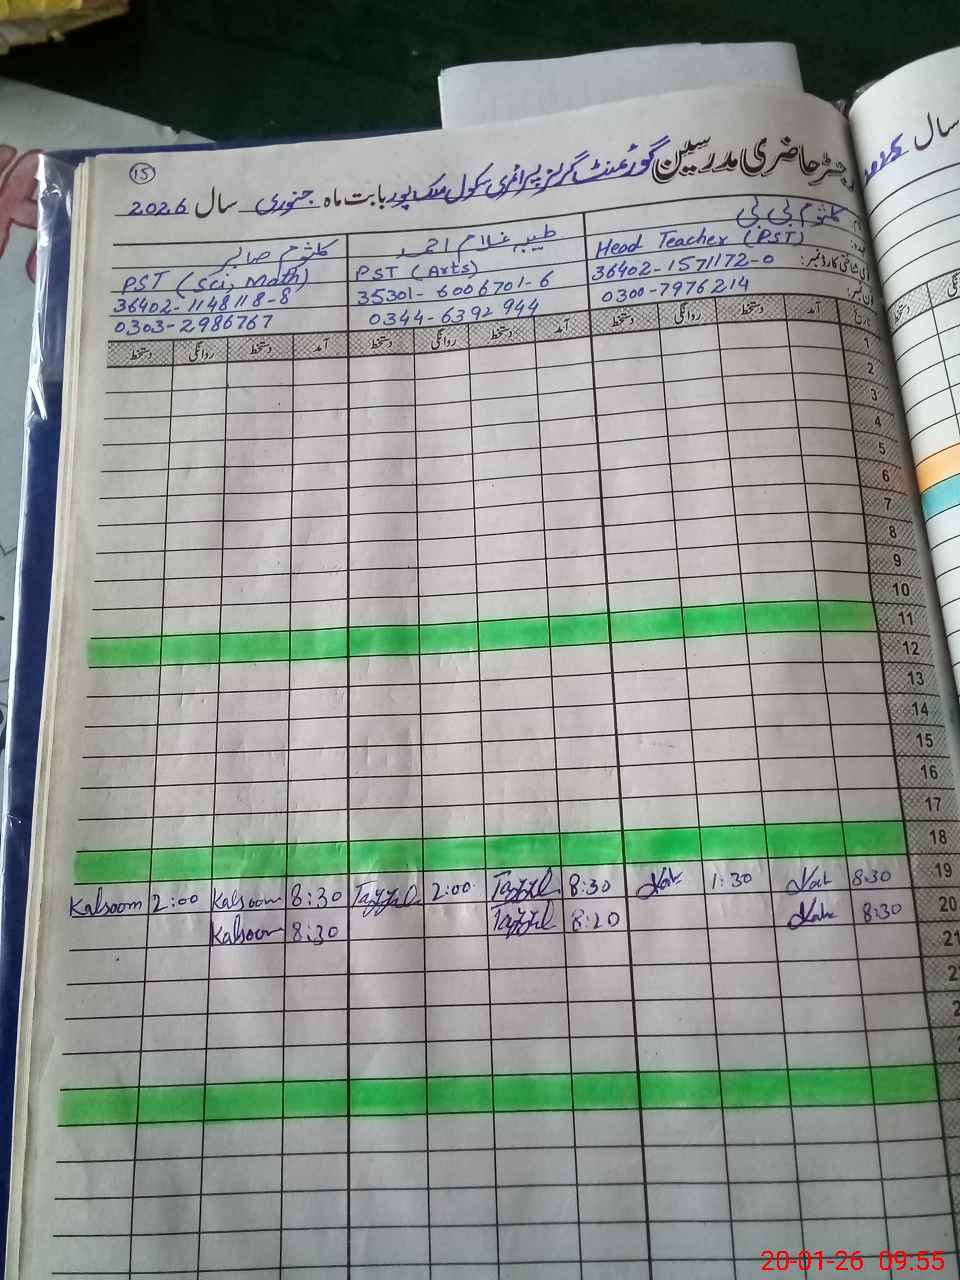 15
رجسٹر حاضری مدرسین گورنمنٹ گرلز پرائمری سکول ملک پور بابت ماہ جنوری سال 2026
سال
کلثوم بی بی
Head Teacher (PST)
36402-1571172-0
0300-7976214
طیبہ غلام احمد
PST (Arts)
35301-6006701-6
0344-6392944
کلثوم صابر
PST (Sci, Math)
36402-1148118-8
0303-2986767
تاریخ آمد دستخط روانگی دستخط آمد دستخط روانگی دستخط آمد دستخط روانگی دستخط
1
2
3
4
5
6
7
8
9
10
11
12
13
14
15
16
17
18
19 8:30 1:30 8:30 2:00 8:30 Kalsoom 2:00 Kalsoom
20 8:30 8:20 8:30 Kalsoom
21
20-01-26 09.55